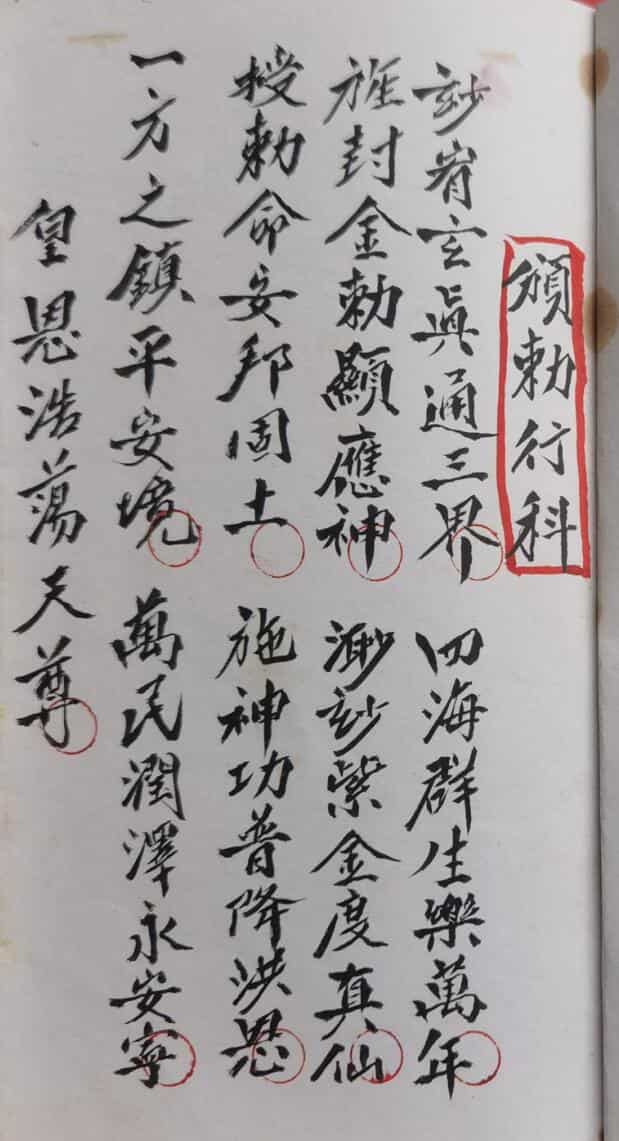 頒勅行科
玅宵玄眞通三界 四海群生樂萬年
旌封金勅顯應神 渺玅紫金度真仙
授勅命安邦固土 施神功普降洪恩
一方之鎮平安境 萬民潤澤永安寧
皇恩浩蕩天尊